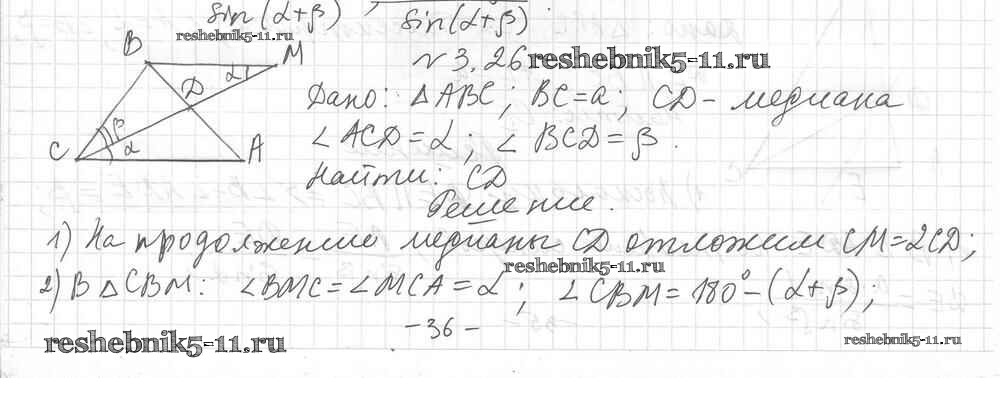 sin(α+β) , sin(α+β).
reshebnik5-11.ru
B M
N 3.26 reshebnik5-11.ru
D α
Дано: △ABC; BC=a; CD – медиана
β
∠ACD=α; ∠BCD=β.
C α A
Найти: CD
Решение.
1) На продолжению медианы CD отложим CM=2CD;
reshebnik5-11.ru
2) В △CBM: ∠BMC=∠MCA=α; ∠CBM=180°-(α+β);
-36-
reshebnik5-11.ru reshebnik5-11.ru